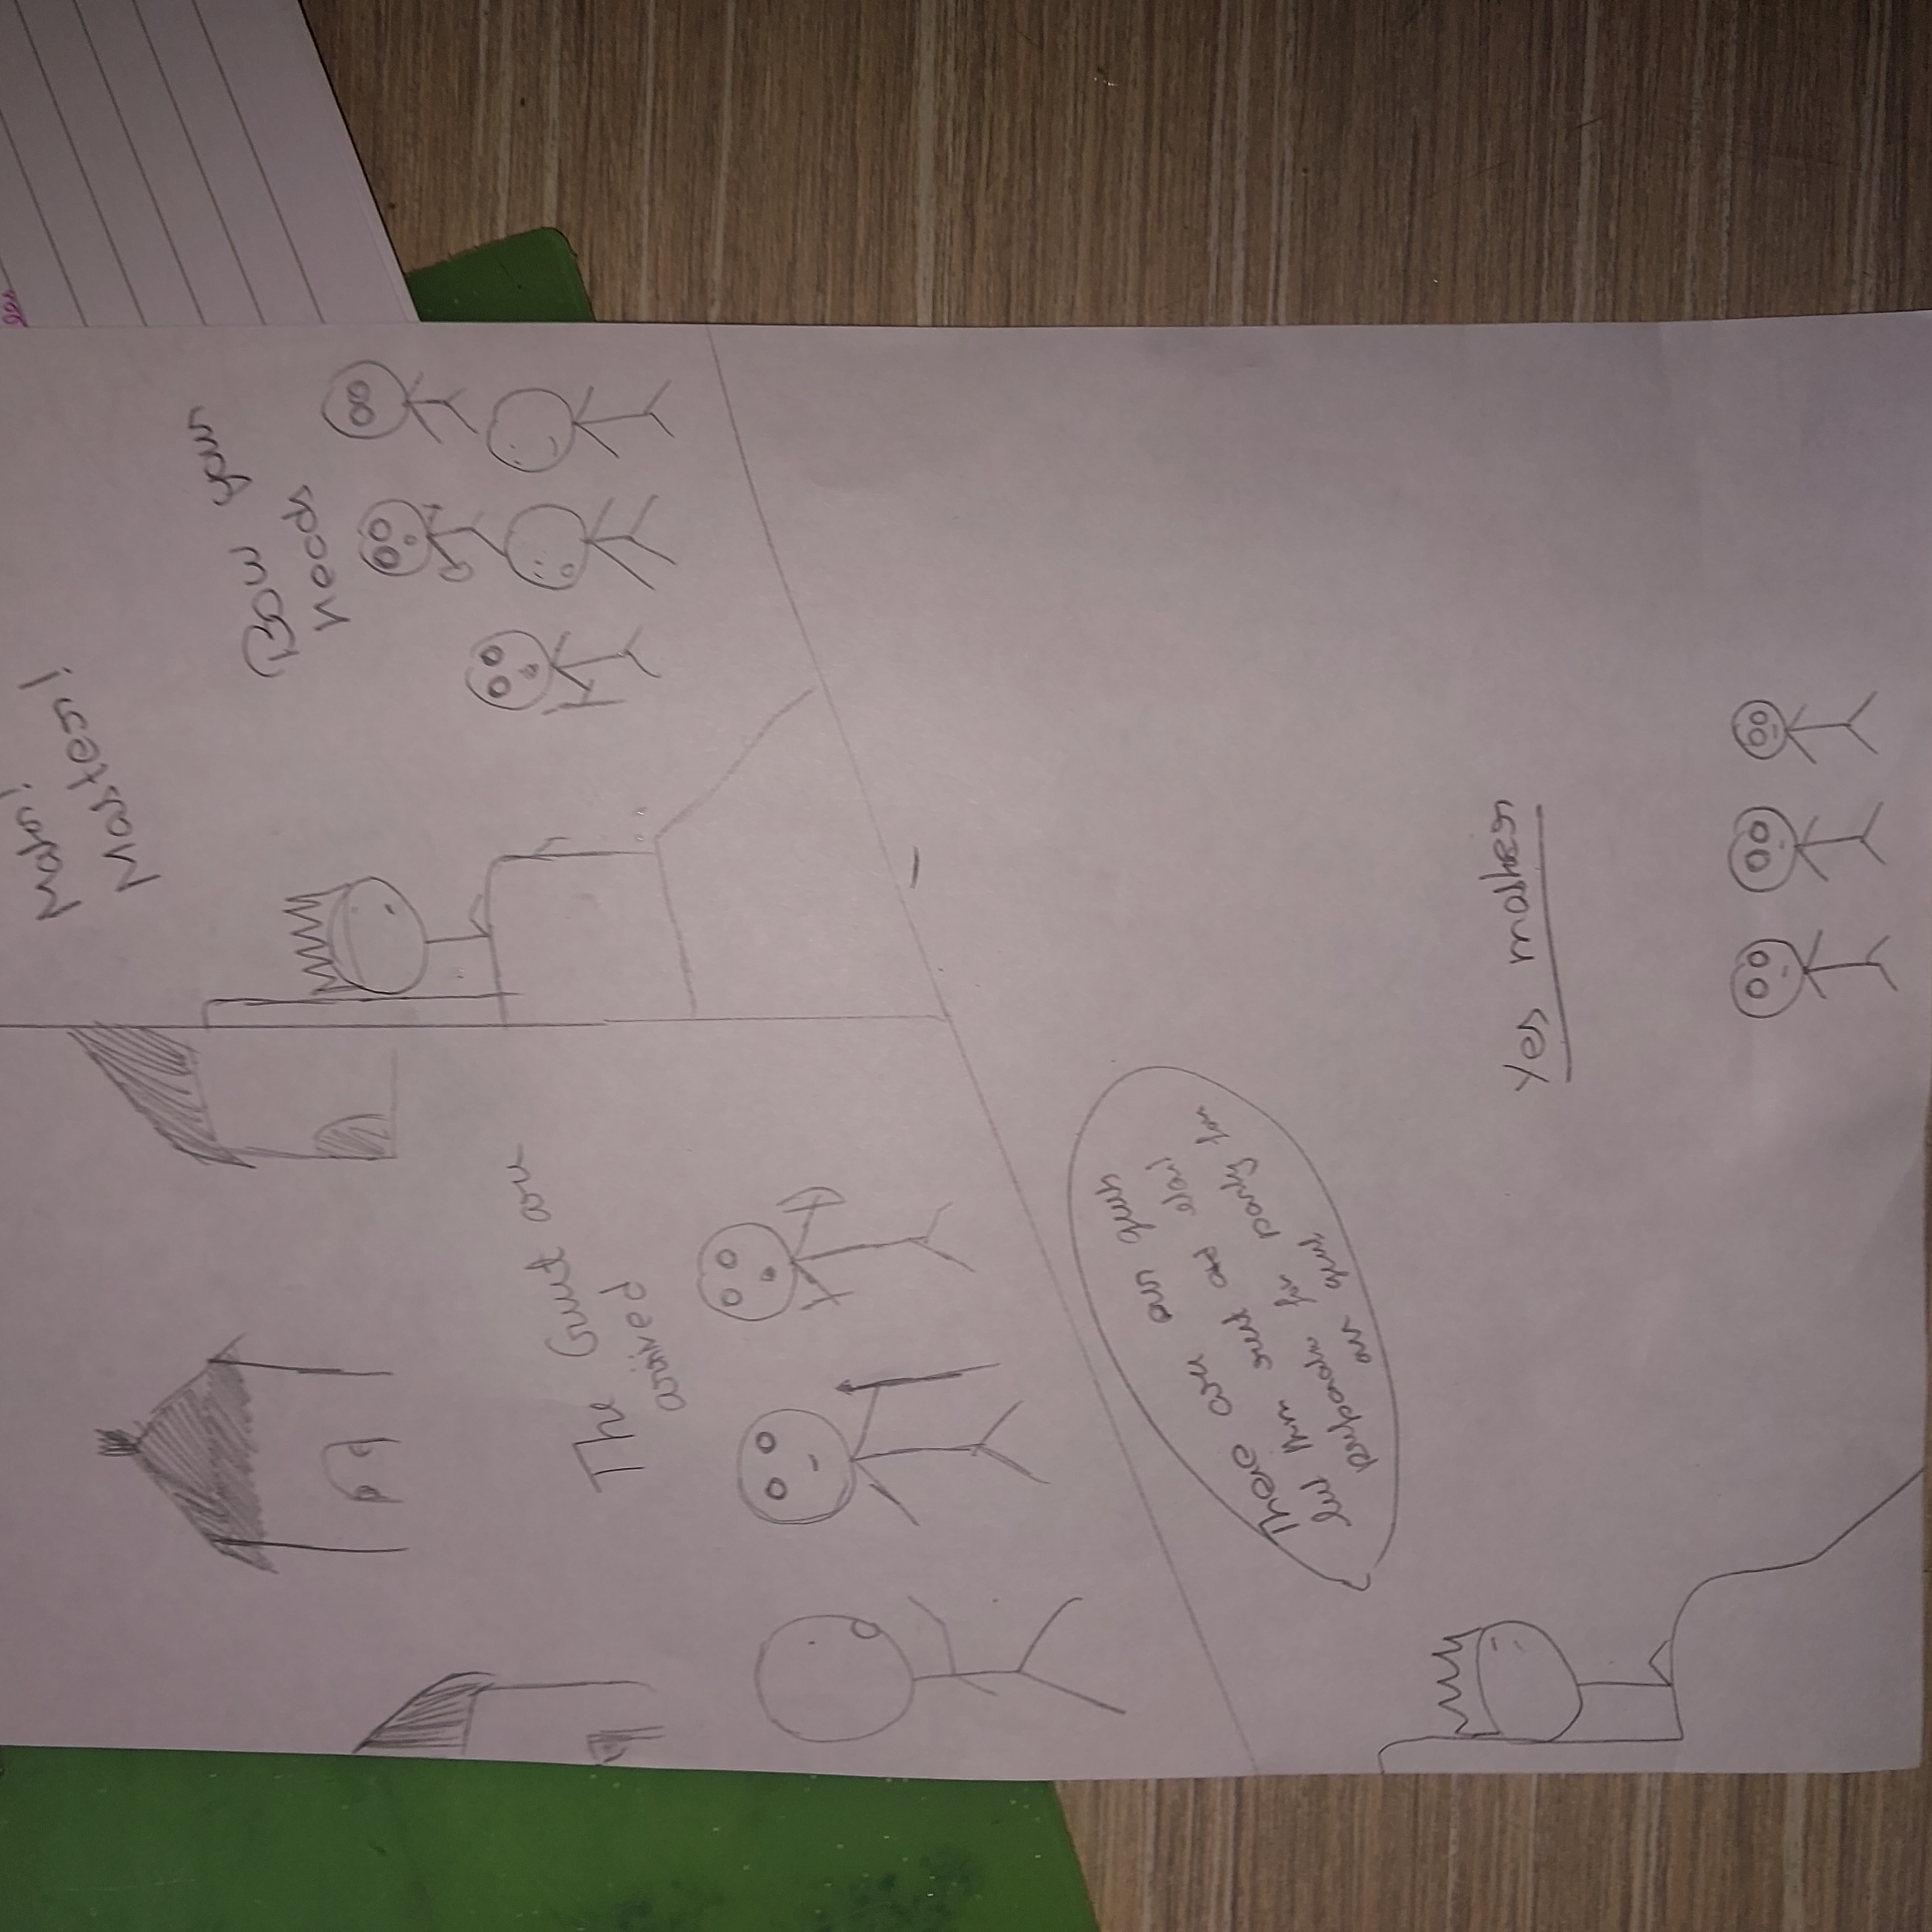 The Guest are
arrived
Mator!
Master!
Bow your
heads
These are our guests
let them rest and start
preparation for party for
our guest
Yes master